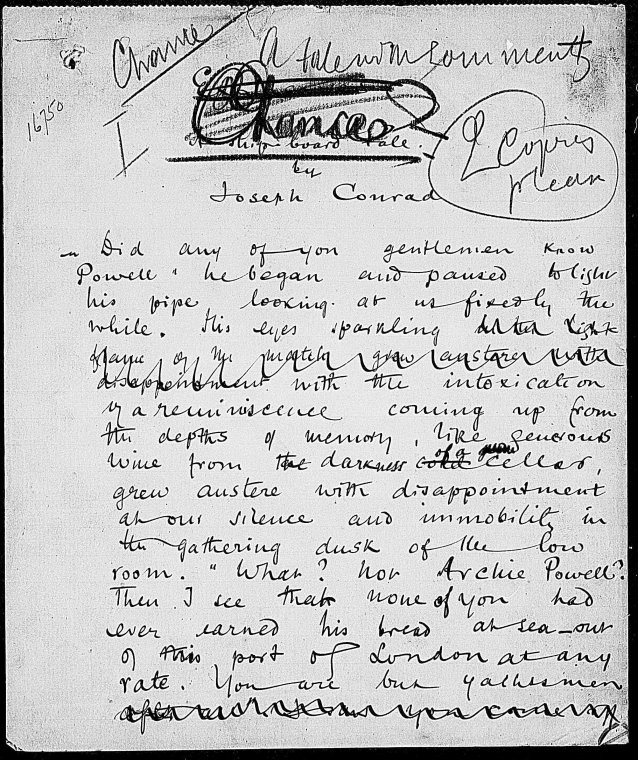 Chance
A tale with comments
16750
I
Chance
A ship-board tale.
2 Copies
please
by
Joseph Conrad
— Did any of you gentlemen know
Powell" he began and paused to light
his pipe looking at us fixedly the
while. His eyes sparkling in the light
flame of the match grew austere with
disappointment with the intoxication
of a reminiscence coming up from
the depths of memory, like generous
wine from the darkness of a cellar,
grew austere with disappointment
at our silence and immobility in
the gathering dusk of the low
room. "What? Not Archie Powell?
Then I see that none of you had
ever earned his bread at sea—out
of this port of London at any
rate. You are but yachtsmen
after all